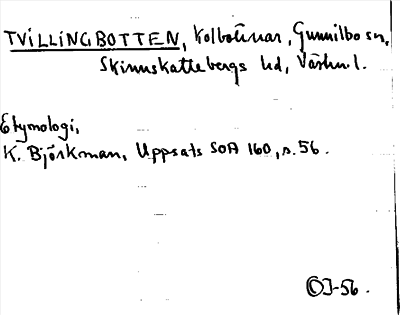 TVILLINGBOTTEN, Kolbottnar, Gunnilbo sn,
Skinnskattebergs hd, Västm l.
Etymologi,
K. Björkman, Uppsats SOA 160, s. 56.
OJ-56.